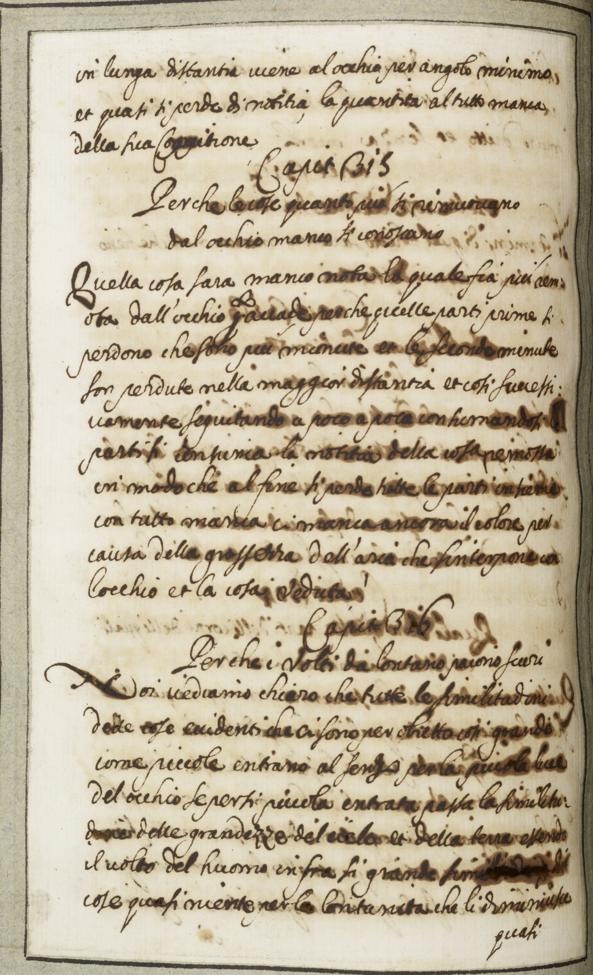 in lunga distantia uiene al occhio per angolo minimo,
et quasi si perde di notitia, la quantita al tutto manca
della sua Cognitione
Capit 315
Perche le cose quanto piu si rimuouano
dal occhio manco si conoscano
Quella cosa sara manco nota la quale fia piu rem:
ota dall'occhio perche quelle parti prime si
perdono che sono piu minute et le seconde minute
son perdute nella maggior distantia et cosi successi:
uamente seguitando a poco a poco consumandosi
parti si consuma la notitia della cosa remossa
in modo che al fine si perde tutte le parti insieme
con tutto manca ancora il colore per
causa della grossezza dell'aria che s'interpone
locchio et la cosa ueduta
Capit 316
Perche i Volti da lontano paiono scuri
Noi uediamo chiaro che tutte le similitudini
delle cose euidenti che ci sono per obietto cosi grande
come piccole entrano al senso per la piccola luce
del occhio se per si piccola entrata passa la similitu:
dine delle grandezze del cielo et della terra essendo
il uolto del huomo infra si grande
cose quasi niente per la lontanita che li diminuisce
quasi